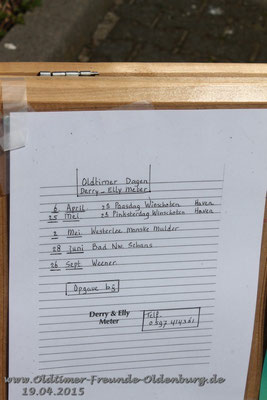 Oldtimer Dagen
Derry - Elly Meter
6 April 2e Paasdag Winschoten Haven
25 Mei 2e Pinksterdag Winschoten Haven
2 Mei Westerlee Monske Mulder
28 Juni Bad Nw Schans
26 Sept. Weener
Opgave bij
Derry & Elly
Meter
Telf
0597 414361
www.Oldtimer-Freunde-Oldenburg.de
19.04.2015